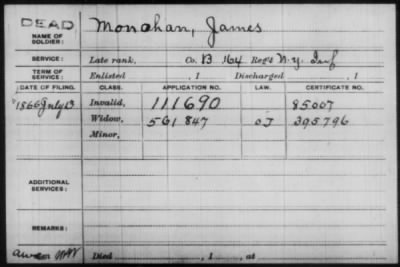 DEAD
NAME OF SOLDIER: Monahan, James
SERVICE: Late rank, Co. B 164 Reg't N.Y. Inf
TERM OF SERVICE: Enlisted , 1 Discharged , 1
DATE OF FILING. CLASS. APPLICATION NO. LAW. CERTIFICATE NO.
1866 July 13 Invalid, 111690 85007
Widow, 561847 OJ 395796
Minor,
ADDITIONAL SERVICES:
REMARKS:
Died , 1 , at